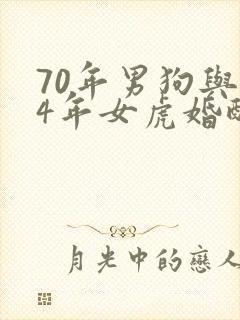 70年男狗與
4年女虎婚
月光中的戀人